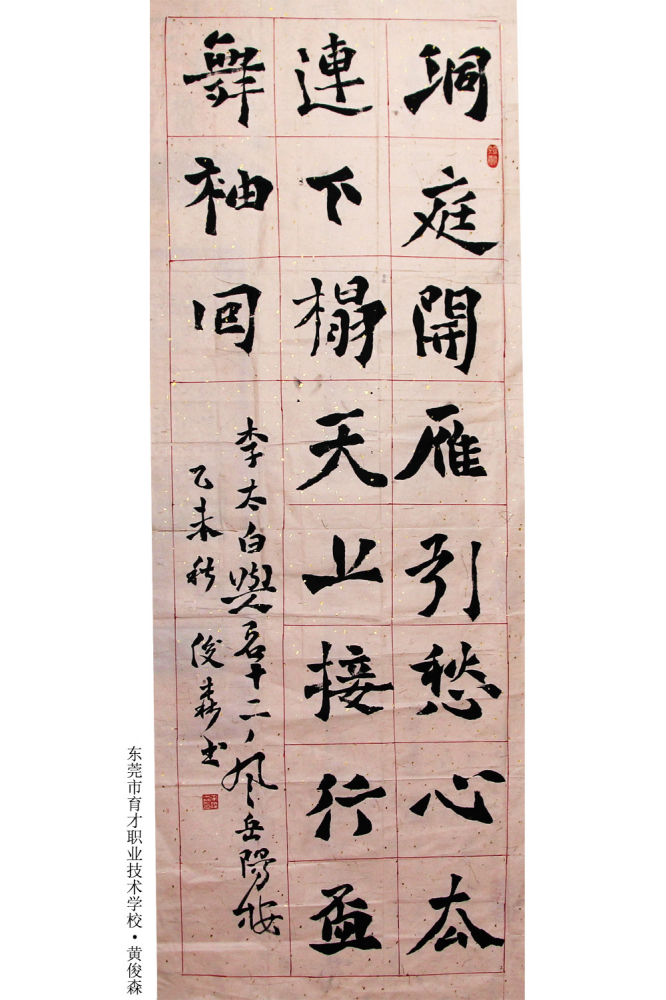 洞庭開雁引愁心厺
連下榻天上接行盃
舞袖回
李太白與十二岳陽樓
乙未秋 俊森书
东莞市育才职业技术学校·黄俊森